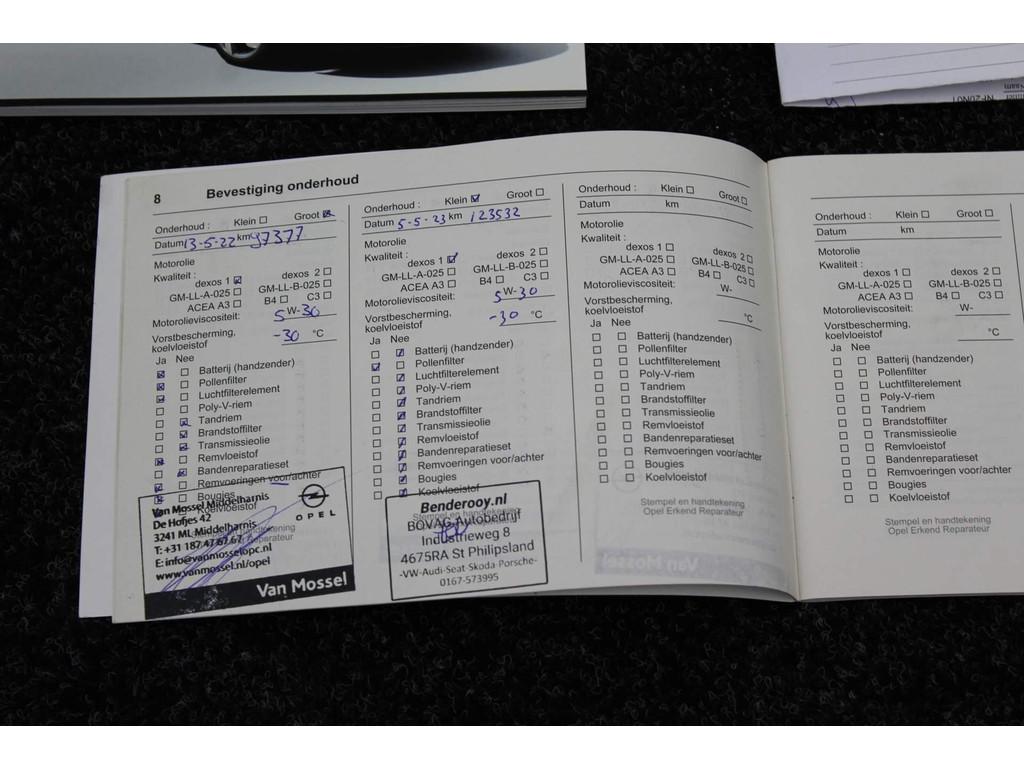 8 Bevestiging onderhoud
Onderhoud : Klein Groot
Datum 13-5-22 km 97377
Motorolie
Kwaliteit :
dexos 1 dexos 2
GM-LL-A-025 GM-LL-B-025
ACEA A3 B4 C3
Motorolieviscositeit: 5 W- 30
Vorstbescherming,
koelvloeistof -30 °C
Ja Nee
Batterij (handzender)
Pollenfilter
Luchtfilterelement
Poly-V-riem
Tandriem
Brandstoffilter
Transmissieolie
Remvloeistof
Bandenreparatieset
Remvoeringen voor/achter
Bougies
Koelvloeistof
Van Mossel Middelharnis
De Hofjes 42
3241 ML Middelharnis
T: +31 187 47 67 67
E: info@vanmosselopc.nl
www.vanmossel.nl/opel
OPEL
Van Mossel
Onderhoud : Klein Groot
Datum 5-5-23 km 123532
Motorolie
Kwaliteit :
dexos 1 dexos 2
GM-LL-A-025 GM-LL-B-025
ACEA A3 B4 C3
Motorolieviscositeit: 5 W- 30
Vorstbescherming,
koelvloeistof -30 °C
Ja Nee
Batterij (handzender)
Pollenfilter
Luchtfilterelement
Poly-V-riem
Tandriem
Brandstoffilter
Transmissieolie
Remvloeistof
Bandenreparatieset
Remvoeringen voor/achter
Bougies
Koelvloeistof
Stempel en handtekening
Benderooy.nl
BOVAG Autobedrijf
Industrieweg 8
4675RA St Philipsland
-VW-Audi-Seat-Skoda-Porsche-
0167-573995
Onderhoud : Klein Groot
Datum km
Motorolie
Kwaliteit :
dexos 1 dexos 2
GM-LL-A-025 GM-LL-B-025
ACEA A3 B4 C3
Motorolieviscositeit: W-
Vorstbescherming,
koelvloeistof °C
Ja Nee
Batterij (handzender)
Pollenfilter
Luchtfilterelement
Poly-V-riem
Tandriem
Brandstoffilter
Transmissieolie
Remvloeistof
Bandenreparatieset
Remvoeringen voor/achter
Bougies
Koelvloeistof
Stempel en handtekening
Opel Erkend Reparateur
Onderhoud : Klein Groot
Datum km
Motorolie
Kwaliteit :
dexos 1 dexos 2
GM-LL-A-025 GM-LL-B-025
ACEA A3 B4 C3
Motorolieviscositeit: W-
Vorstbescherming,
koelvloeistof °C
Ja Nee
Batterij (handzender)
Pollenfilter
Luchtfilterelement
Poly-V-riem
Tandriem
Brandstoffilter
Transmissieolie
Remvloeistof
Bandenreparatieset
Remvoeringen voor/achter
Bougies
Koelvloeistof
Stempel en handtekening
Opel Erkend Reparateur